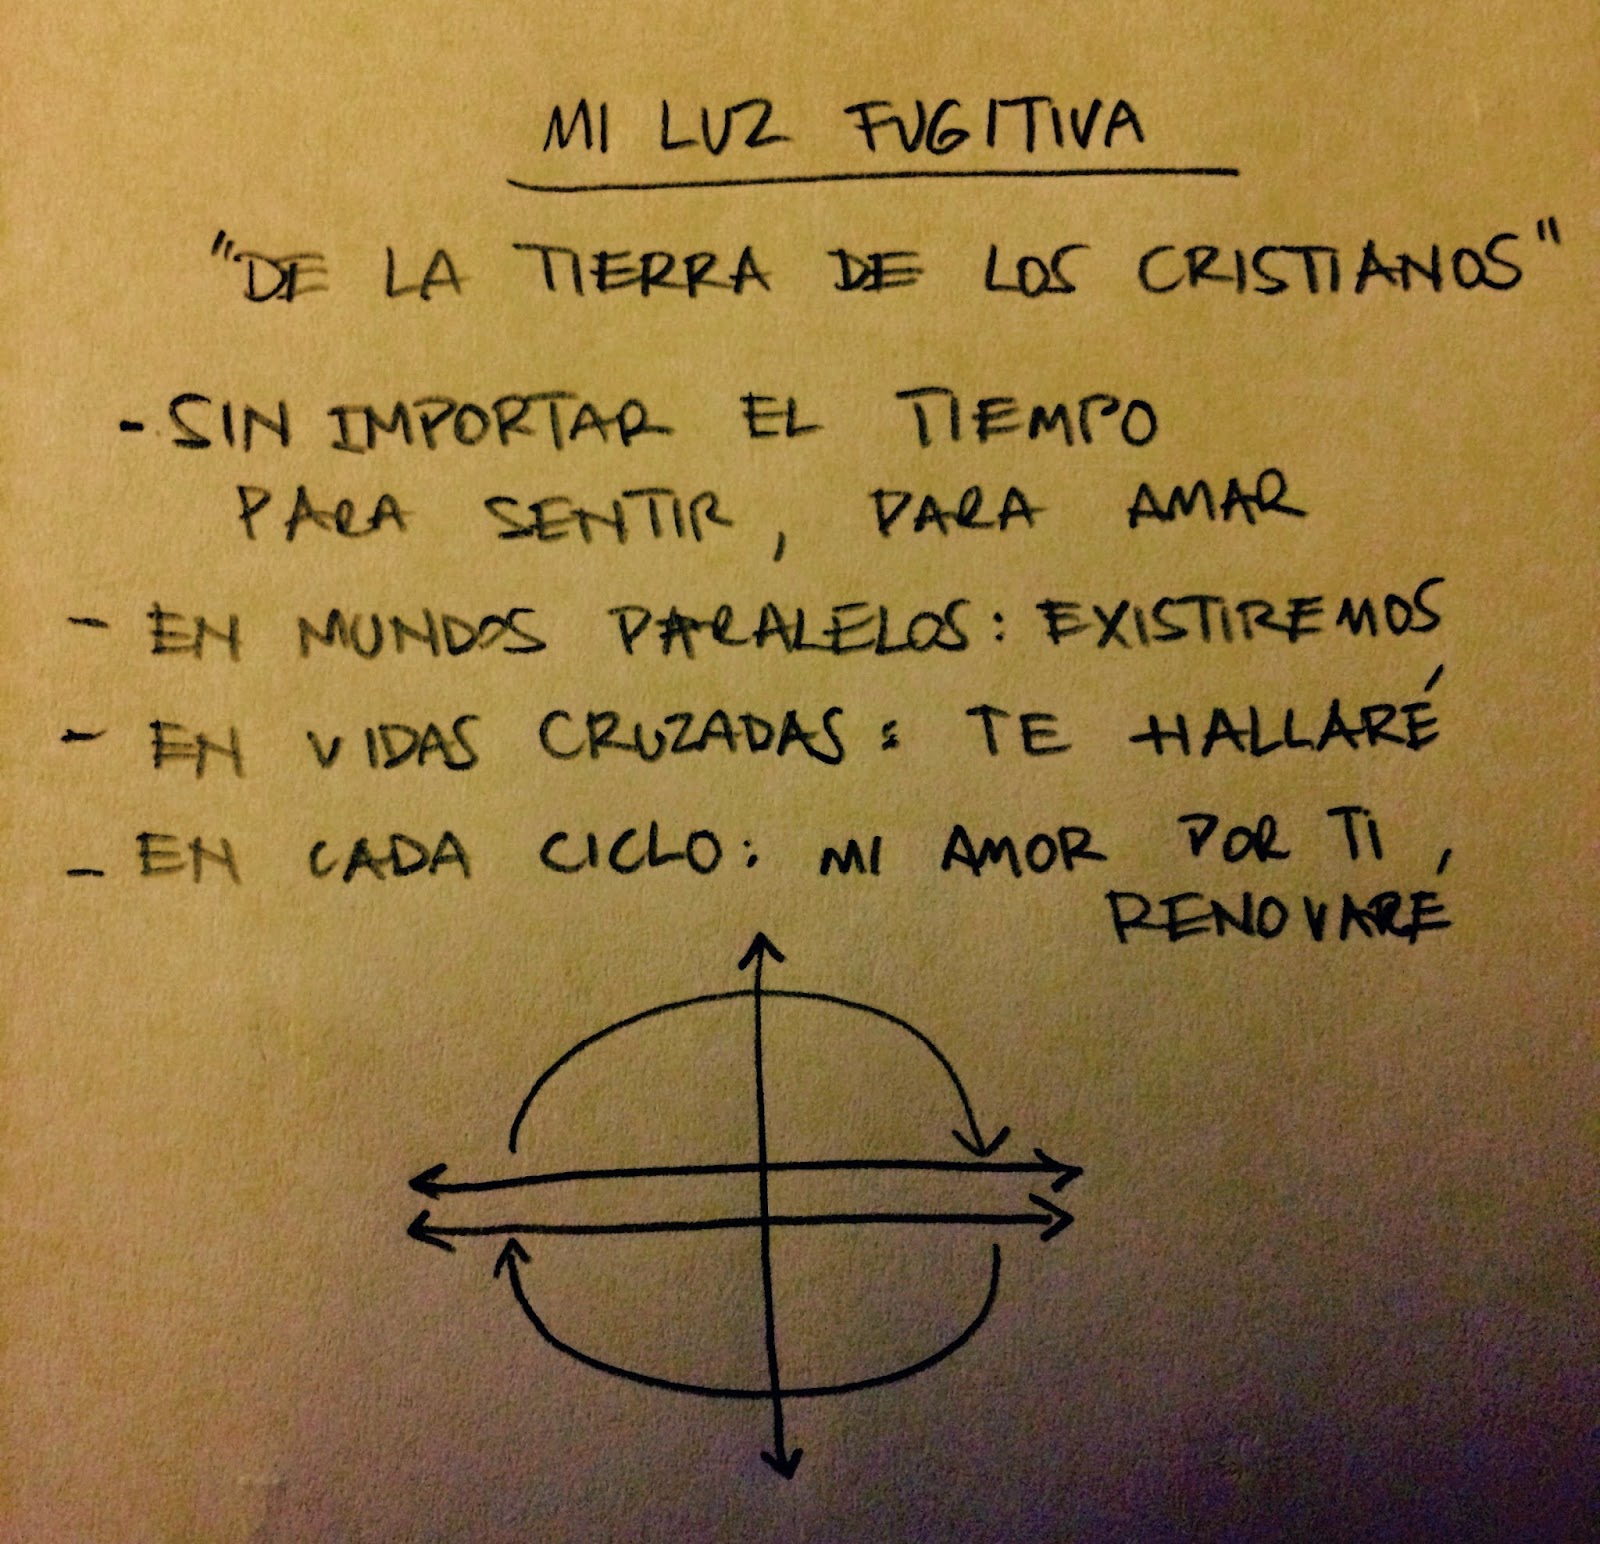 MI LUZ FUGITIVA
"DE LA TIERRA DE LOS CRISTIANOS"
- SIN IMPORTAR EL TIEMPO
PARA SENTIR, PARA AMAR
- EN MUNDOS PARALELOS: EXISTIREMOS
- EN VIDAS CRUZADAS: TE HALLARÉ
- EN CADA CICLO: MI AMOR POR TI,
RENOVARÉ